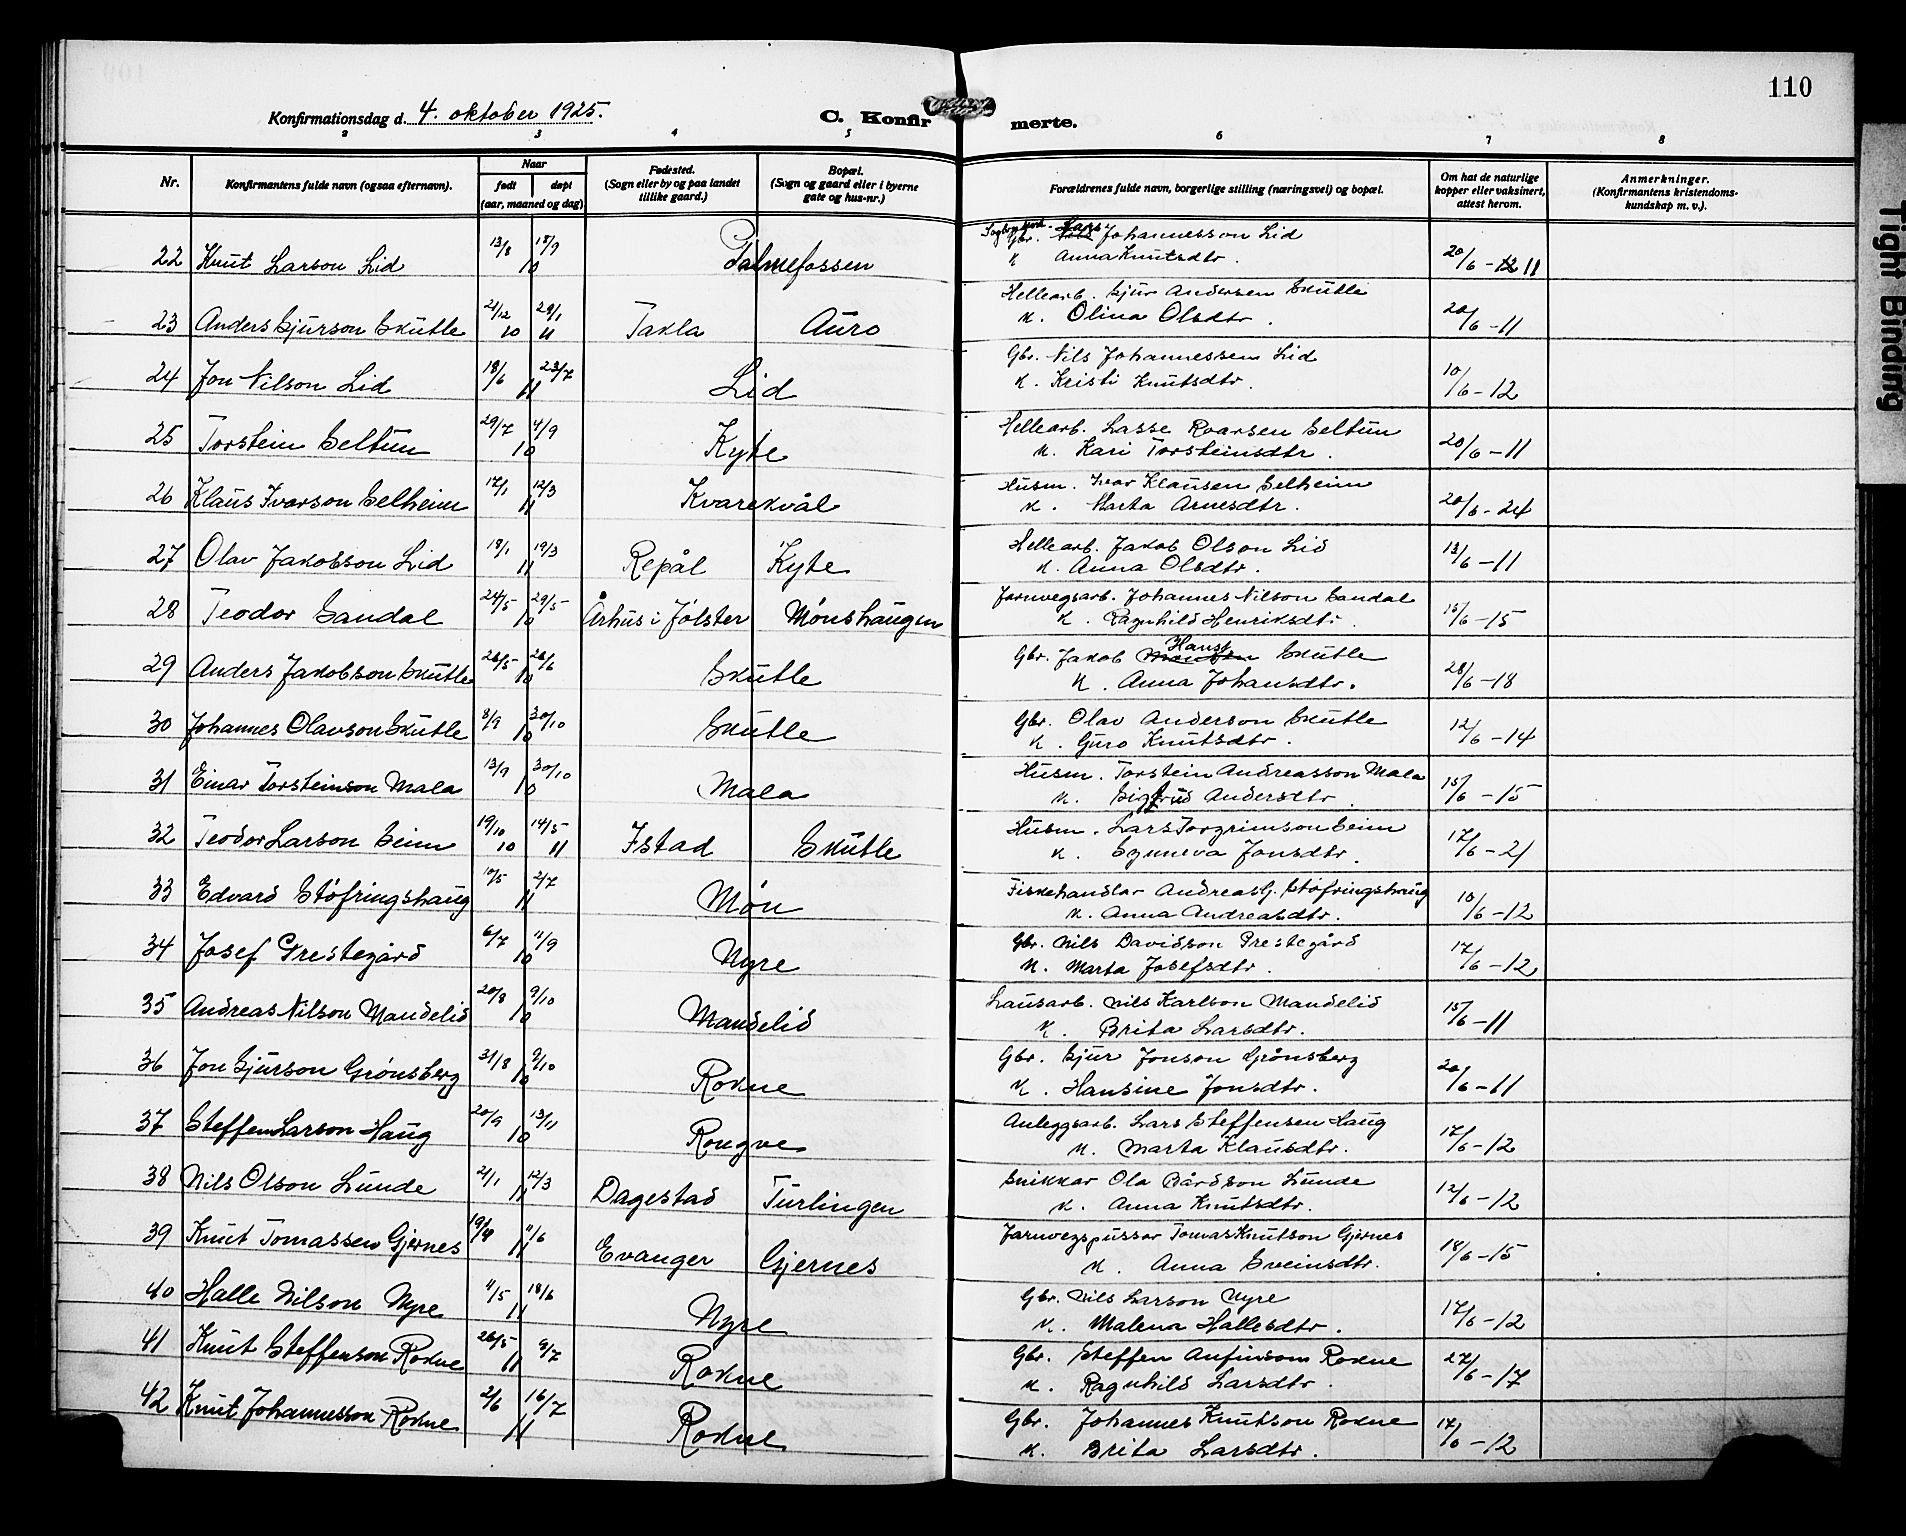 110
Konfirmationsdag d. 4. oktober 1925.
C. Konfirmerte.
2 3 4 5 6 7 8
Nr. Konfirmantens fulde navn (ogsaa efternavn). Naar født døpt (aar, maaned og dag) Fødested. (Sogn eller by og paa landet tillike gaard.) Bopæl. (Sogn og gaard eller i byerne gate og hus-nr.) Forældrenes fulde navn, borgerlige stilling (næringsvei) og bopæl. Om hat de naturlige kopper eller vaksinert, attest herom. Anmerkninger. (Konfirmantens kristendomskundskap m. v.).
22 Knut Larson Lid 13/8 18/9 10 Palmefossen Gbr. Lars Johannesson Lid 20/6 - 11
K Anna Knutsdtr.
23 Anders Sjurson Skutle 21/12 10 29/1 11 Takla Auro Hellearb. Sjur Andersen Skutle 20/6 - 11
K. Olina Olsdtr.
24 Jon Nilson Lid 18/6 23/7 11 Lid Gbr. Nils Johannessen Lid 10/6 - 12
K. Kristi Knutsdtr.
25 Torstein Seltun 29/7 4/9 10 Kyte Hellearb. Lasse Roarsen Seltun 20/6 - 11
K. Kari Torsteinsdtr.
26 Klaus Ivarson Selheim 17/1 12/3 11 Kvarekvål Husm. Ivar Klausen Selheim 20/6 - 24
K. Marta Arnesdtr.
27 Olav Jakobson Lid 18/1 19/3 11 Repål Kyte Hellearb. Jakob Olson Lid 13/6 - 11
K. Anna Olsdtr.
28 Teodor Sandal 24/5 29/5 10 Århus i Jølster Mønshaugen Jarnvegsarb. Johannes Nilson Sandal 15/6 - 15
K. Ragnhild Henriksdtr.
29 Anders Jakobson Skutle 26/5 26/6 10 Skutle Gbr. Jakob Hanss Skutle 28/6 - 18
K. Anna Johansdtr.
30 Johannes Olavson Skutle 8/9 30/10 10 Skutle Gbr. Olav Anderson Skutle 12/6 - 14
K. Guro Knutsdtr.
31 Einar Torsteinson Mala 13/9 30/10 10 Mala Husm. Torstein Andreasson Mala 15/6 - 15
K. Sigfrid Andersdtr.
32 Teodor Larson Seim 19/10 10 14/5 11 Istad Skutle Husm. Lars Torgrimson Seim 17/6 - 21
K. Synneva Jonsdtr.
33 Edvard Støfringshaug 10/5 2/7 11 Møn Fiskehandlar Andreas G. Støfringshaug 10/6 - 12
K. Anna Andreasdtr.
34 Josef Prestegård 6/7 11/9 10 Nyre Gbr. Nils Davidson Prestegård 17/6 - 12
K. Marta Josefsdtr.
35 Andreas Nilson Mandelid 20/8 9/10 10 Mandelid Lausarb. Nils Karlson Mandelid 15/6 - 11
K. Brita Larsdtr.
36 Jon Sjurson Grønsberg 31/8 9/10 10 Rokne Gbr. Sjur Jonson Grønsberg 20/6 - 11
K. Hansine Jonsdtr.
37 Steffen Larson Haug 20/9 13/11 10 Rongve Anleggsarb. Lars Steffensen Haug 17/6 - 12
K. Marta Klausdtr.
38 Nils Olson Lunde 2/1 12/3 11 Dagestad Turlingen Snikkar Ola Bårdson Lunde 12/6 - 12
K. Anna Knutsdtr.
39 Knut Tomassen Gjernes 11/6 11 Evanger Gjernes Jarnvegspussar Tomas Knutson Gjernes 18/6 - 15
K. Anna Sveinsdtr.
40 Halle Nilson Nyre 11/5 18/6 11 Nyre Gbr. Nils Larson Nyre 17/6 - 12
K. Malena Hallesdtr.
41 Knut Steffenson Rokne 26/5 9/7 11 Rokne Gbr. Steffen Anfinsom Rokne 27/6 - 17
K. Ragnhild Larsdtr.
42 Knut Johannesson Rokne 2/6 16/7 11 Rokne Gbr. Johannes Knutson Rokne 17/6 - 12
K. Brita Larsdtr.
Tight Binding